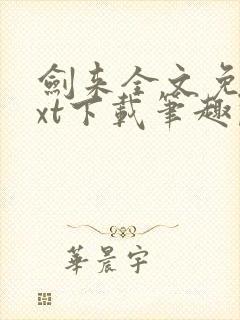 劍来全文免
xt下載筆趣
華晨宇